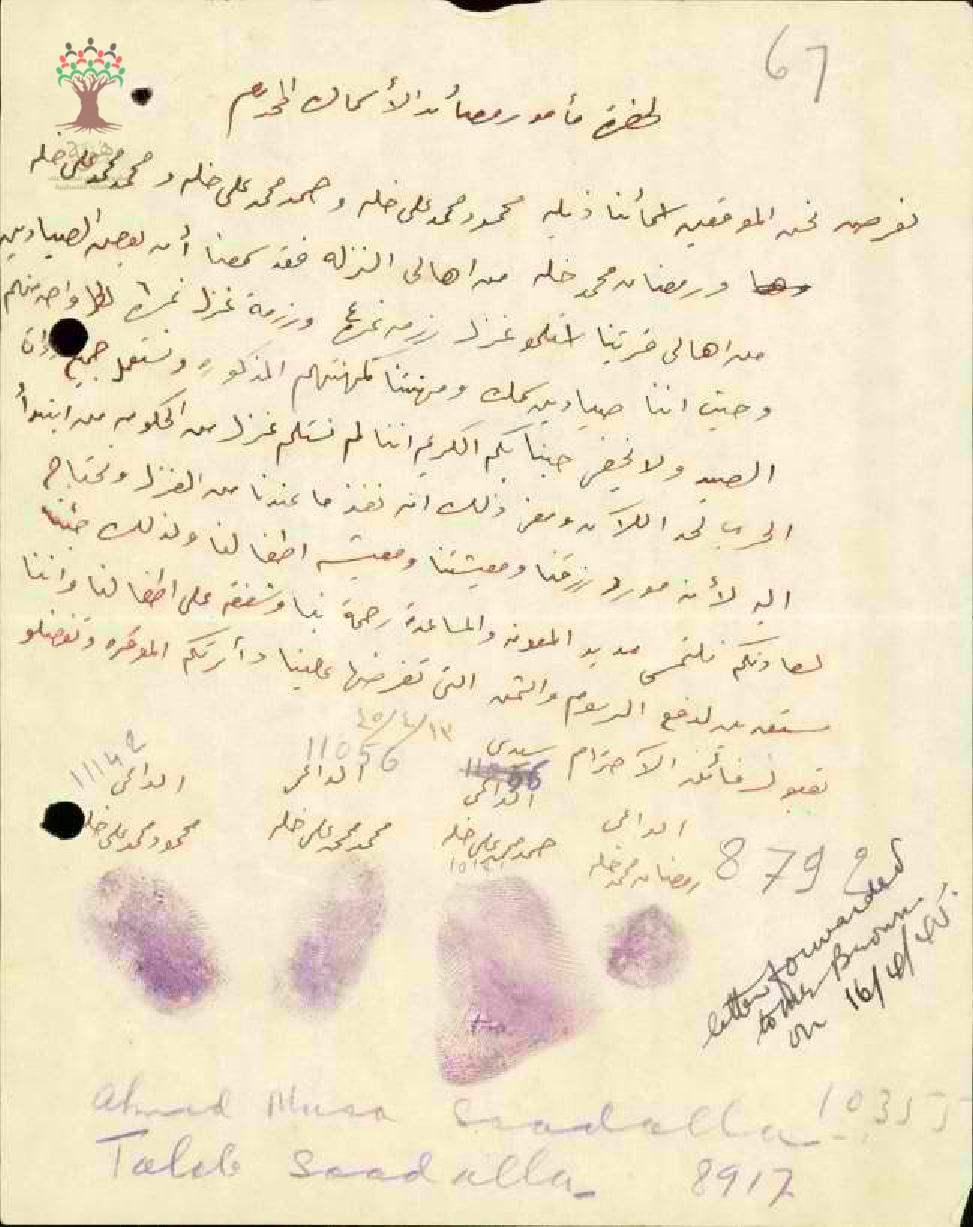 67
لحضرة مأمور مصائد الأسماك المحترم
نعرض نحن الموقعين اسمائنا ذيله محمود محمد علي خله و حمد محمد علي خله و محمد محمد علي خله
ورمضان محمد خله من اهالي النزله فقد سمعنا أن بعض الصيادين
من اهالي قريتنا استلمو غزل رزمه نمرة ٤ ورزمة غزل نمرة ٦ لكل واحد منهم
وحيث اننا صيادين سمك ومهنتنا كمهنتهم المذكوره ونستعمل جميع
الصيد ولا يخفى جنابكم الكريم اننا لم نستلم غزل من الحكومه من ابتدأ
الحرب لحد اللآن ومعنى ذلك انه نفذ ما عندنا من الغزل ونحتاج
اليه لأنه مورد رزقنا ومعيشتنا ومعيشه اطفالنا ولذلك جئنا
لسعادتكم نلتمس مد يد المعونه والمساعدة رحمة بنا وشفقه على اطفالنا واننا
مستعدين لدفع الرسوم والثمن التي تفرضها علينا دأرتكم الموقره وتفضلو
بقبول فائق الاحترام سيدي
٤٥/٤/١٣
الداعي
رمضان محمد خله
11056
الداعي
حمد محمد علي خله
11056
الداعي
محمد محمد علي خله
11142
الداعي
محمود محمد علي خله
8792
letter forwarded
to Mr Brown
on 16/4/45.
Ahmad Musa Saadalla 10355
Taleb Saadalla 8917